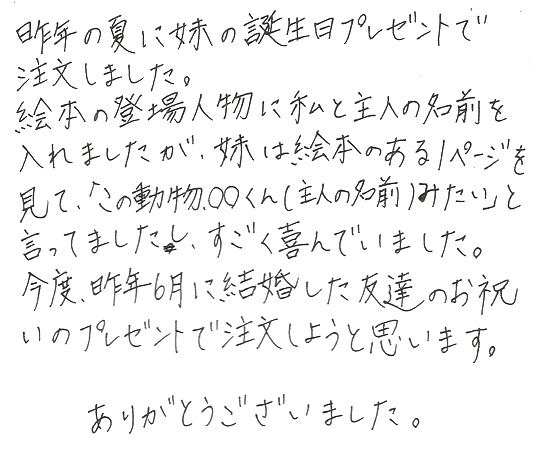 昨年の夏に妹の誕生日プレゼントで
注文しました。
絵本の登場人物に私と主人の名前を
入れましたが、妹は絵本のある1ページを
見て、「この動物、○○くん(主人の名前)みたい」と
言ってましたし、すごく喜んでいました。
今度、昨年6月に結婚した友達のお祝
いのプレゼントで注文しようと思います。
ありがとうございました。